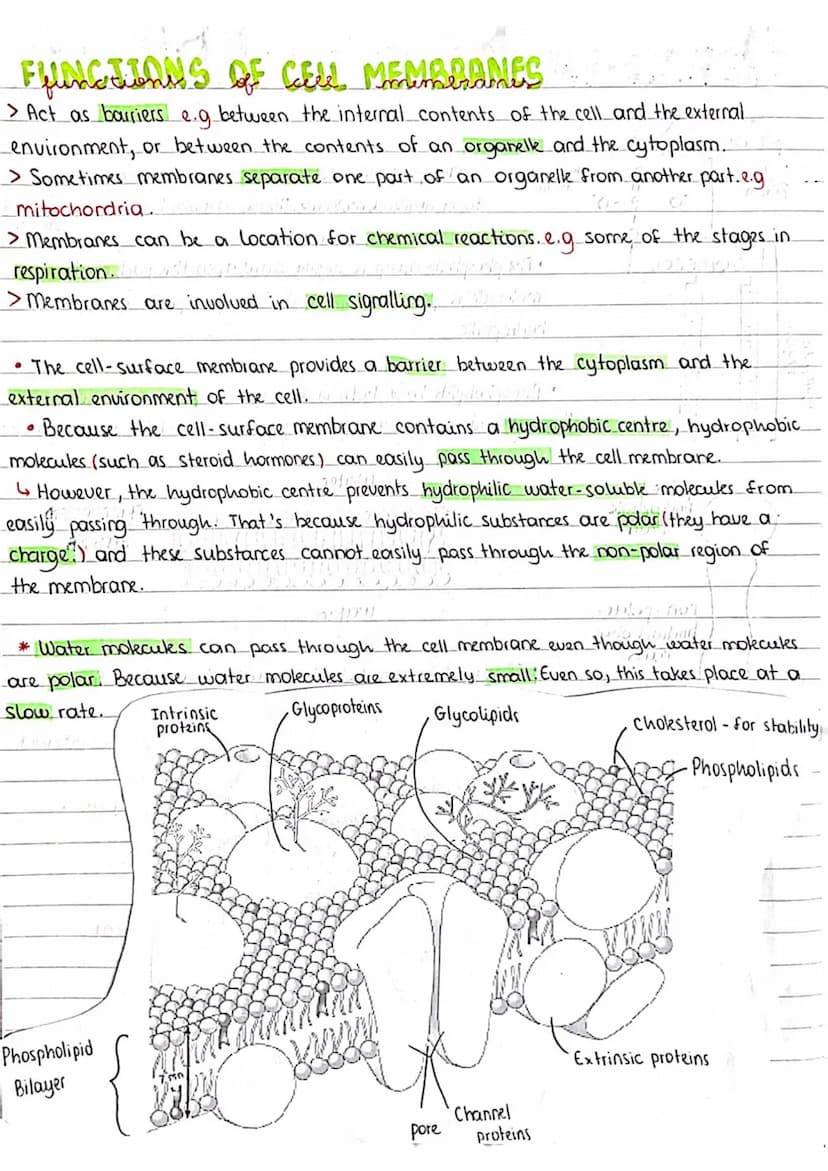 FUNCTIONS OF CELL MEMBRANES
functions of cell membranes
> Act as barriers e.g between the internal contents of the cell and the external
environment, or between the contents of an organelle and the cytoplasm.
> Sometimes membranes separate one part of an organelle from another part. e.g
mitochondria.
> Membranes can be a location for chemical reactions. e.g some of the stages in
respiration.
> Membranes are involved in cell signalling.
• The cell-surface membrane provides a barrier between the cytoplasm and the
external environment of the cell.
• Because the cell-surface membrane contains a hydrophobic centre, hydrophobic
molecules (such as steroid hormones) can easily pass through the cell membrane.
↳ However, the hydrophobic centre prevents hydrophilic water-soluble molecules from
easily passing through. That's because hydrophilic substances are polar (they have a
charge.) and these substances cannot easily pass through the non-polar region of
the membrane.
* Water molecules can pass through the cell membrane even though water molecules
are polar. Because water molecules are extremely small. Even so, this takes place at a
slow rate.
Intrinsic
proteins
Glycoproteins
Glycolipids
Cholesterol - for stability
Phospholipids
Phospholipid
Bilayer
7 nm
Extrinsic proteins
Channel
proteins
pore